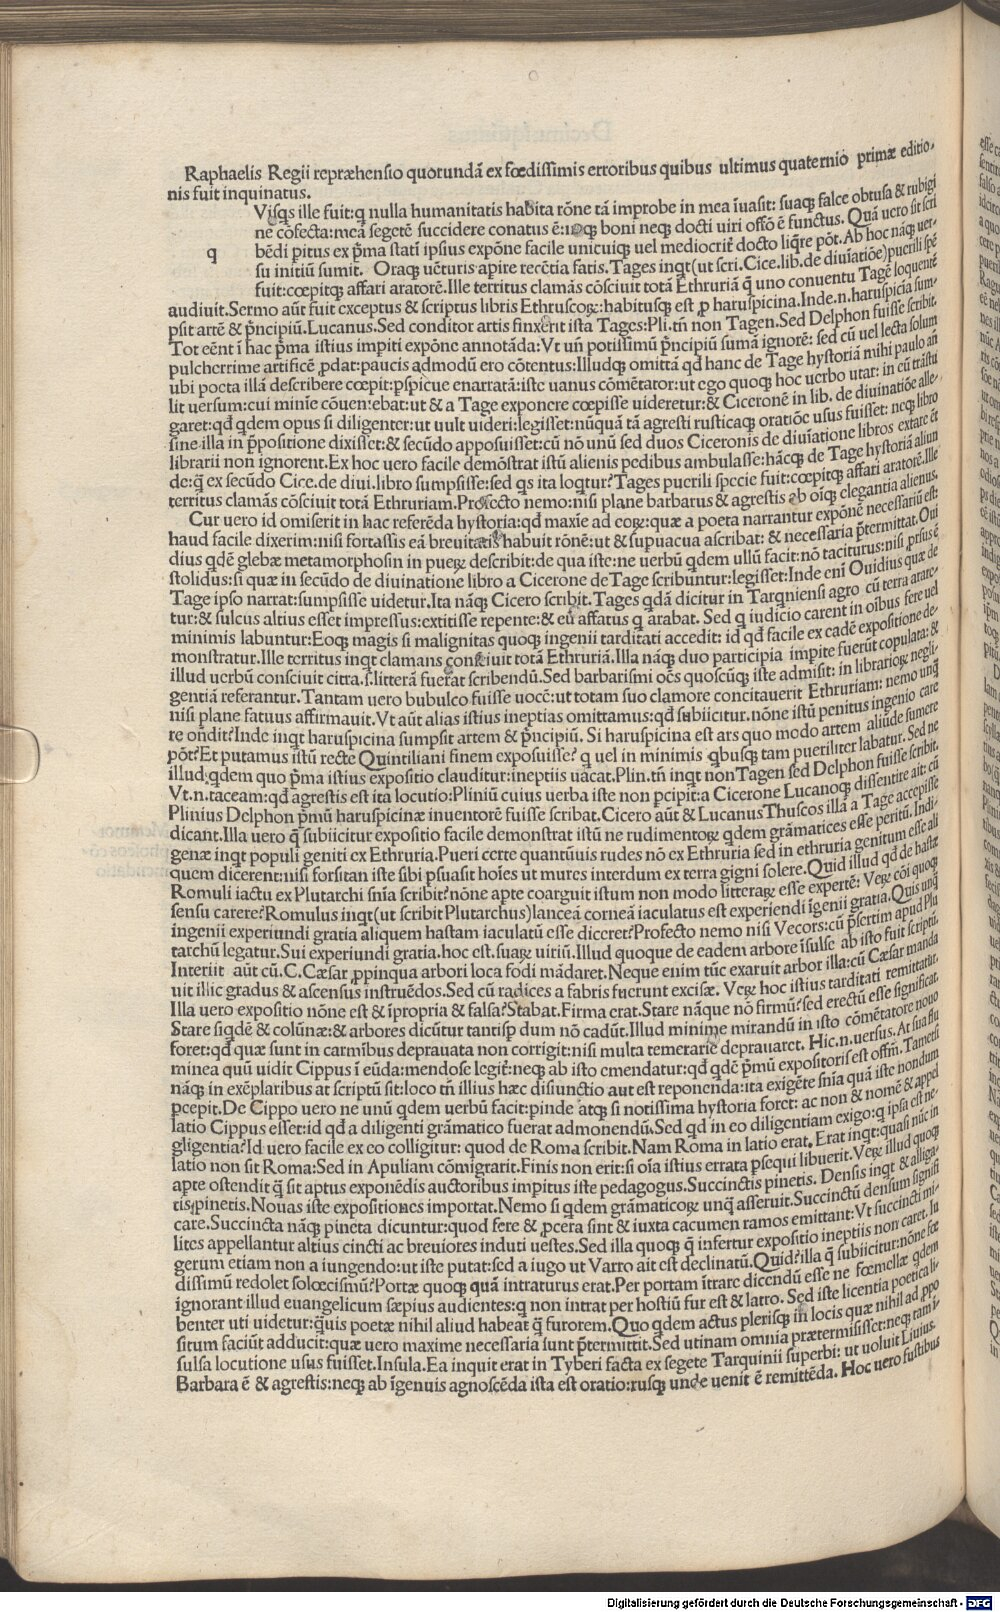 Raphaelis Regii repræhensio quorundā ex fœdissimis erroribus quibus ultimus quaternio primæ editio-
nis fuit inquinatus.
Visq̄s ille fuit:q nulla humanitatis habita rōne tā improbe in mea īuasit: suaqȝ falce obtusa & rubigi
ne cōfecta:meā segetē succidere conatus ē:isqȝ boni neqȝ docti uiri offō ē functus. Quā uero sit scri
q
bēdi pitus ex p̄ma stati ipsius expōne facile unicuiqȝ uel mediocrit̄ docto liq̄re pōt. Ab hoc nāqȝ uer-
su initiū sumit. Oraqȝ uēturis apire recētia fatis. Tages inqt (ut scri. Cice.lib.de diuiatiōe) puerili spē
fuit:cœpitqȝ affari aratorē.Ille territus clamās cōsciuit totā Ethruriā q̄ uno conuentu Tagē loquentē
audiuit.Sermo aūt fuit exceptus & scriptus libris Ethruscoꝝ:habitusqȝ est ꝓ haruspicina.Inde.n.haruspicia sum-
psit artē & p̄ncipiū.Lucanus.Sed conditor artis finxerit ista Tages:Pli.tn̄ non Tagen.Sed Delphon fuisse scribit.
Tot eēnt ī hac p̄ma istius impiti expōne annotāda:Vt un̄ potissimū p̄ncipiū sumā ignorē: sed cū uel lecta solum
pulcherrime artificē ꝓdat:paucis admodū ero cōtentus:Illudqȝ omittā qđ hanc de Tage hystoriā mihi paulo añ
ubi poeta illā describere cœpit:pspicue enarratā:iste uanus cōmētator:ut ego quoqȝ hoc uerbo utar: in eū trāstu
lit uersum:cui minie cōuen:ebat:ut & a Tage exponere cœpisse uideretur:& Ciceronē in lib. de diuinatiōe alle-
garet:qđ qdem opus si diligenter:ut uult uideri:legisset:nūquā tā agresti rusticaqȝ oratiōe usus fuisset: neqȝ libro
sine illa in p̄positione dixisset:& secūdo apposuisset:cū nō unū sed duos Ciceronis de diuiatione libros extare ēt
librarii non ignorent.Ex hoc uero facile demōstrat istū alienis pedibus ambulasse:hācqȝ de Tage hystoriā aliun
de:q̄ ex secūdo Cice.de diui.libro sumpsisse:sed qs ita loqtur?Tages puerili specie fuit:cœpitqȝ affari aratorē.Ille
territus clamās cōsciuit totā Ethruriam.Profecto nemo:nisi plane barbarus & agrestis ab oīqȝ elegantia alienus.
Cur uero id omiserit in hac referēda hystoria:qđ maxīe ad eoꝝ:quæ a poeta narrantur expōnē necessariū est:
haud facile dixerim:nisi fortassis eā breuitatis habuit rōnē:ut & supuacua ascribat: & necessaria p̄termittat. Oui
dius qdē glebæ metamorphosin in pueꝝ describit:de qua iste:ne uerbū qdem ullū facit:nō taciturus:nisi ꝓrsus ē
stolidus:si quæ in secūdo de diuinatione libro a Cicerone de Tage scribuntur:legisset:Inde eni Ouidius quæ de
Tage ipso narrat:sumpsisse uidetur.Ita nāqȝ Cicero scribit.Tages qdā dicitur in Tarqniensi agro cū terra arare-
tur:& sulcus altius esset impressus:extitisse repente:& eū affatus q arabat. Sed q iudicio carent in oibus fere uel
minimis labuntur:Eoqȝ magis si malignitas quoqȝ ingenii tarditati accedit: id qđ facile ex eadē expositione de-
monstratur.Ille territus inqt clamans consciuit totā Ethruriā.Illa nāqȝ duo participia impite fuerūt copulata: &
illud uerbū consciuit citra.s.litterā fuerat scribendū.Sed barbarismi oēs quoscūqȝ iste admisit: in librarioꝝ negli-
gentiā referantur.Tantam uero bubulco fuisse uocē:ut totam suo clamore concitauerit Ethruriam: nemo unq̄
nisi plane fatuus affirmauit.Vt aūt alias istius ineptias omittamus:qđ subiicitur.nōne istū penitus ingenio care
re ondit?Inde inqt haruspicina sumpsit artem & p̄ncipiū. Si haruspicina est ars quo modo artem aliūde sumere
pōt?Et putamus istū recte Quintiliani finem exposuisse? q uel in minimis qbusqȝ tam pueriliter labatur. Sed ne
illud:qdem quo p̄ma istius expositio clauditur:ineptiis uacat.Plin.tn̄ inqt non Tagen sed Delphon fuisse scribit.
Vt.n.taceam:qđ agrestis est ita locutio:Pliniū cuius uerba iste non pcipit:a Cicerone Lucanoqȝ dissentire ait: cū
Plinius Delphon p̄mū haruspicinæ inuentorē fuisse scribat.Cicero aūt & Lucanus Thuscos illā a Tage accepisse
dicant.Illa uero q̄ subiicitur expositio facile demonstrat istū ne rudimentoꝝ qdem grāmatices esse peritū. Indi-
genæ inqt populi geniti ex Ethruria.Pueri certe quantūuis rudes nō ex Ethruria sed in ethruria genitum esse ali
quem dicerent:nisi forsitan iste sibi psuasit hoīes ut mures interdum ex terra gigni solere.Quid illud qđ de hastæ
Romuli iactu ex Plutarchi snīa scribit?nōne apte coarguit istum non modo litteraꝝ esse expertē: Veꝝ cōi quoqȝ
sensu carere?Romulus inqt(ut scribit Plutarchus)lanceā corneā iaculatus est experiendi īgenii gratia.Quis unq̄
ingenii experiundi gratia aliquem hastam iaculatū esse diceret?Profecto nemo nisi Vecors:cū p̄sertim apud Plu
tarchū legatur.Sui experiundi gratia.hoc est.suaꝝ uiriū.Illud quoque de eadem arbore īsulse ab isto fuit scriptū.
Interiit aūt cū.C.Cæsar ꝓpinqua arbori loca fodi mādaret.Neque enim tūc exaruit arbor illa:cū Cæsar manda
uit illic gradus & ascensus instruēdos.Sed cū radices a fabris fuerunt excisæ. Veꝝ hoc istius tarditati remittatur.
Illa uero expositio nōne est & īpropria & falsa?Stabat.Firma erat.Stare nāque nō firmū?sed erectū esse significat.
Stare siqdē & colūnæ:& arbores dicūtur tantisp dum nō cadūt.Illud minime mirandū in isto cōmētatore nouo
foret:qđ quæ sunt in carmībus deprauata non corrigit:nisi multa temerarie deprauaret. Hic.n.uersus.At sua flu
minea quū uidit Cippus ī eūda:mendose legit̄:neqȝ ab isto emendatur:qđ qdē p̄mū expositoris est offm̄. Tametsi
nāqȝ in exēplaribus at scriptū sit:loco tn̄ illius hæc disiunctio aut est reponenda:ita exigēte snīa quā iste nondum
pcepit.De Cippo uero ne unū qdem uerbū facit:pinde atqȝ si notissima hystoria foret: ac non & nomē & appel
latio Cippus esset:id qđ a diligenti grāmatico fuerat admonendū.Sed qd in eo diligentiam exigo:q ipsa est ne-
gligentia?Id uero facile ex eo colligitur: quod de Roma scribit. Nam Roma in latio erat. Erat inqt:quasi nūc in
latio non sit Roma:Sed in Apuliam cōmigrarit.Finis non erit:si oīa istius errata psequi libuerit.Veꝝ illud quoqȝ
apte ostendit q̄ sit aptus exponēdis auctoribus impitus iste pedagogus.Succinctis pinetis. Densis inqt & alliga-
tis pinetis.Nouas iste expositiones importat.Nemo si qdem grāmaticoꝝ unq̄ asseruit.Succinctū densum signifi
care.Succincta nāqȝ pineta dicuntur:quod fere & ꝓcera sint & iuxta cacumen ramos emittant:Vt succincti mi-
lites appellantur altius cincti ac breuiores induti uestes.Sed illa quoqȝ q̄ infertur expositio ineptiis non caret. Iu
gerum etiam non a iungendo:ut iste putat:sed a iugo ut Varro ait est declinatū.Quid?illa q̄ subiicitur:nōne fœ
dissimū redolet solœcismū?Portæ quoqȝ quā intraturus erat.Per portam ītrare dicendū esse ne fœmellæ qdem
ignorant illud euangelicum sæpius audientes:q non intrat per hostiū fur est & latro. Sed iste licentia poetica li-
benter uti uidetur:q̄uis poetæ nihil aliud habeat q̄ furorem.Quo qdem actus plerisqȝ in locis quæ nihil ad ꝓpo
situm faciūt adducit:quæ uero maxime necessaria sunt p̄termittit.Sed utinam omnia prætermisisset:neqȝ tam ī
sulsa locutione usus fuisset.Insula.Ea inquit erat in Tyberi facta ex segete Tarquinii superbi: ut uoluit Liuius.
Barbara ē & agrestis:neqȝ ab īgenuis agnoscēda ista est oratio:rusqȝ unde uenit ē remittēda. Hoc uero fustibus
Digitalisierung gefördert durch die Deutsche Forschungsgemeinschaft - DFG